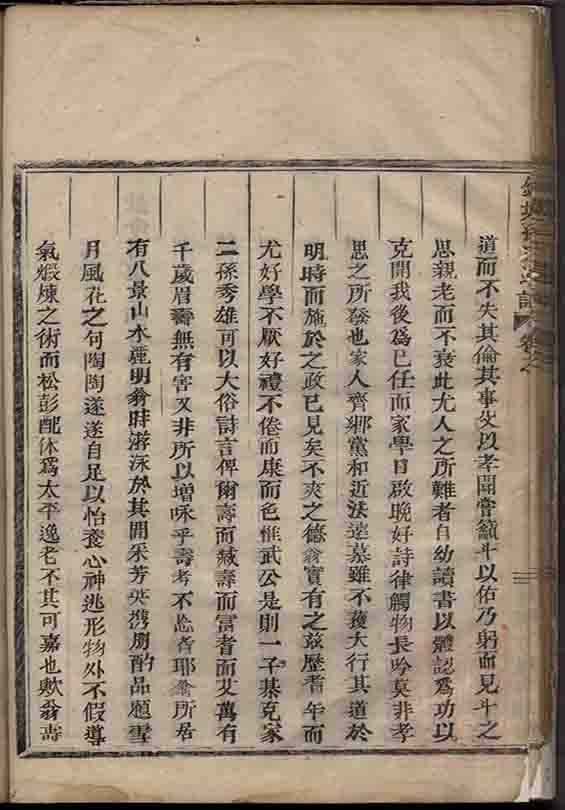 道而不失其倫其事父以孝聞嘗籲斗以佑乃躬而見斗之
思親老而不衰此尤人之所難者自幼讀書以體認爲功以
克開我後爲己任而家學日啟晚好詩律觸物長吟莫非孝
思之所發也家人齊鄉黨和近法遠慕雖不獲大行其道於
明時而施於之政已見矣不爽之德翁實有之玆歷耆年而
尤好學不厭好禮不倦而康而色惟武公是則一子綦克家
二孫秀雄可以大俗詩言俾爾壽而臧壽而富耆而艾萬有
千歲眉壽無有害又非所以增咏乎壽考不忘者耶翁所居
有八景山水麗明翁時游泳於其間采芳英携朋酌品題雪
月風花之句陶陶遂遂自足以怡養心神逃形物外不假導
氣煅煉之術而松彭配休爲太平逸老不其可嘉也歟翁壽